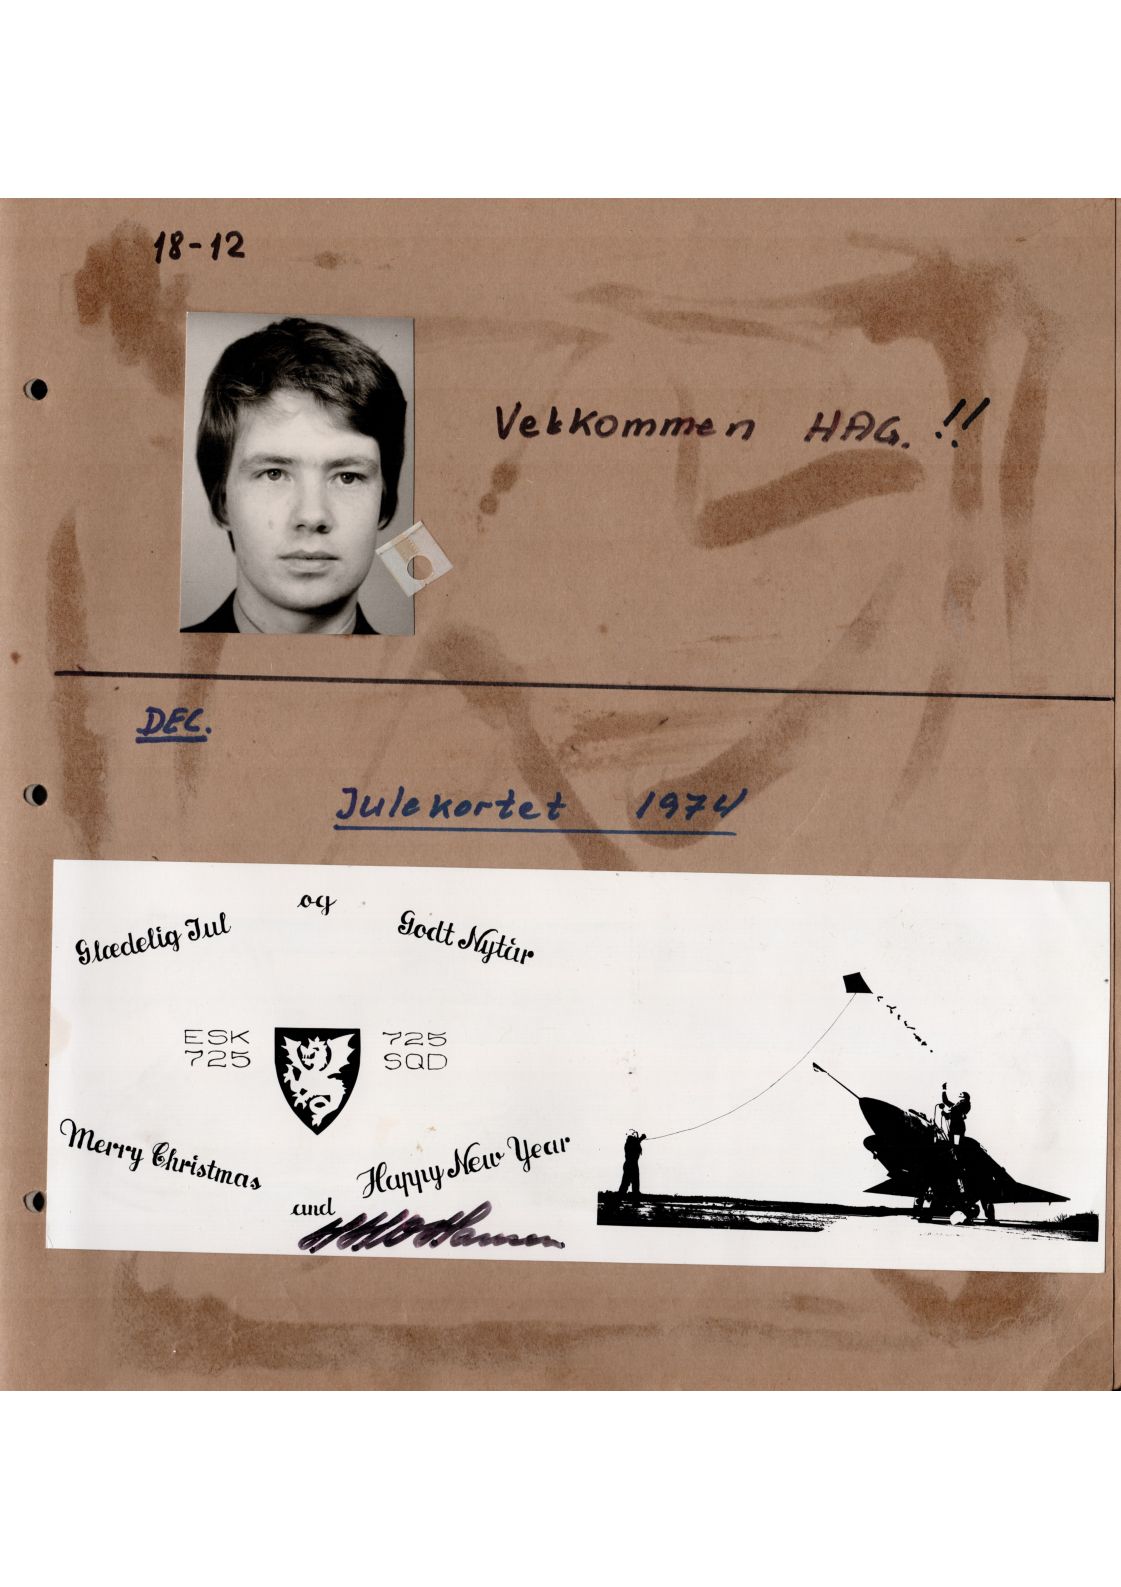 18-12
Velkommen HAG. !!
DEC.
Julekortet 1974
Glædelig Jul og Godt Nytår
ESK 725
725 SQD
Merry Christmas and Happy New Year
Hansen